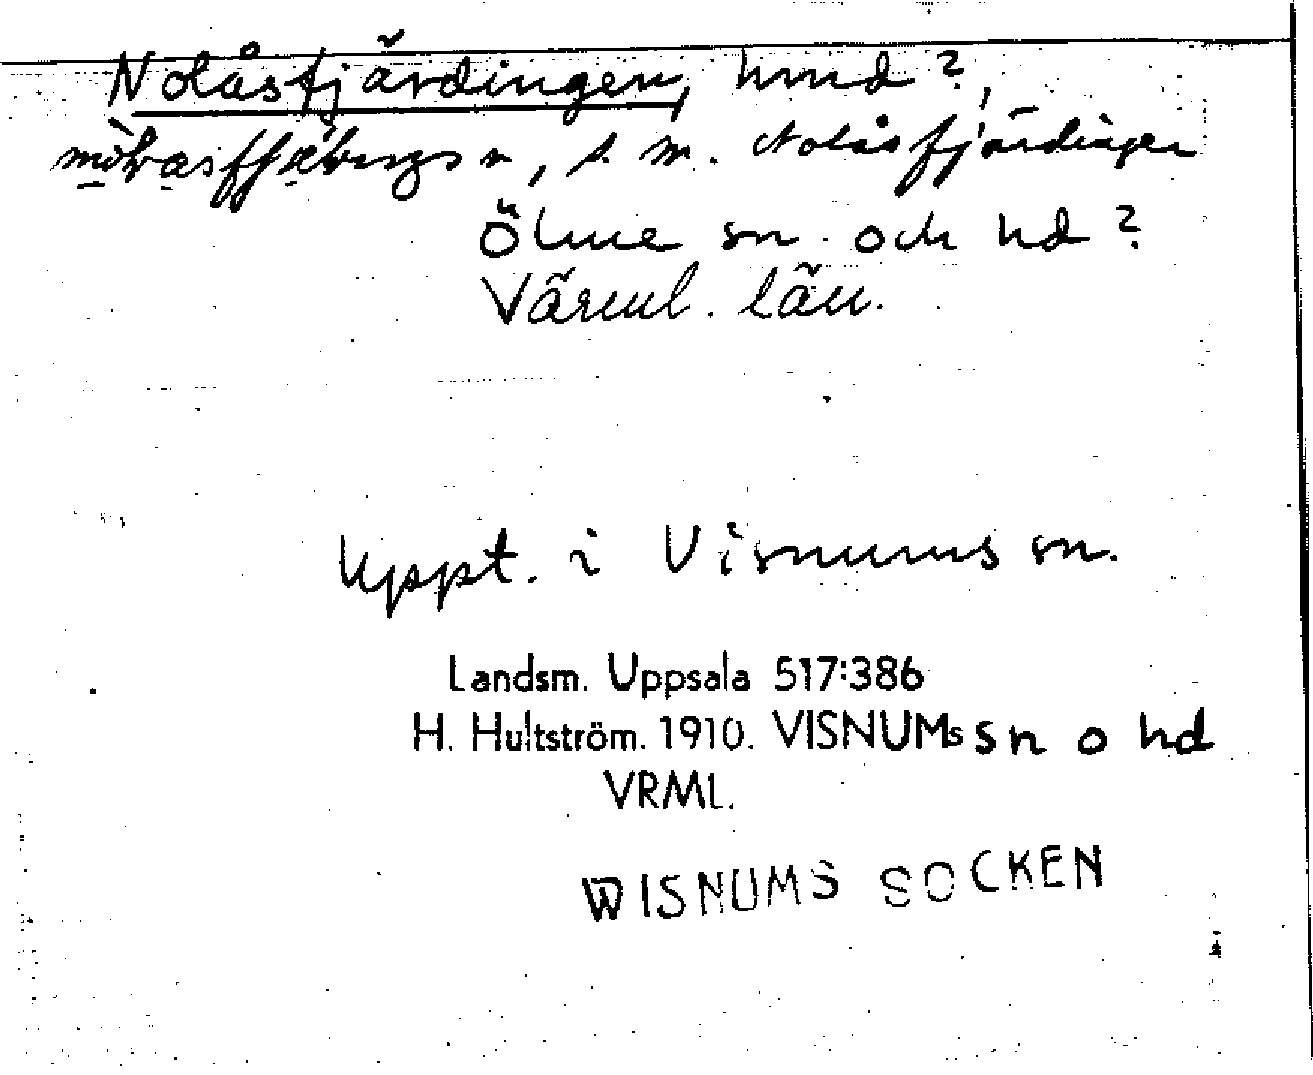 Nolåsfjärdingen, hmd?,
s. m. Nolåsfjärdingen
Ölme sn. och hd?
Värml. län.
Uppt. i Visnums sn.
Landsm. Uppsala 517:386
H. Hultström. 1910. VISNUMs sn o hd
VRML.
WISNUMS SOCKEN